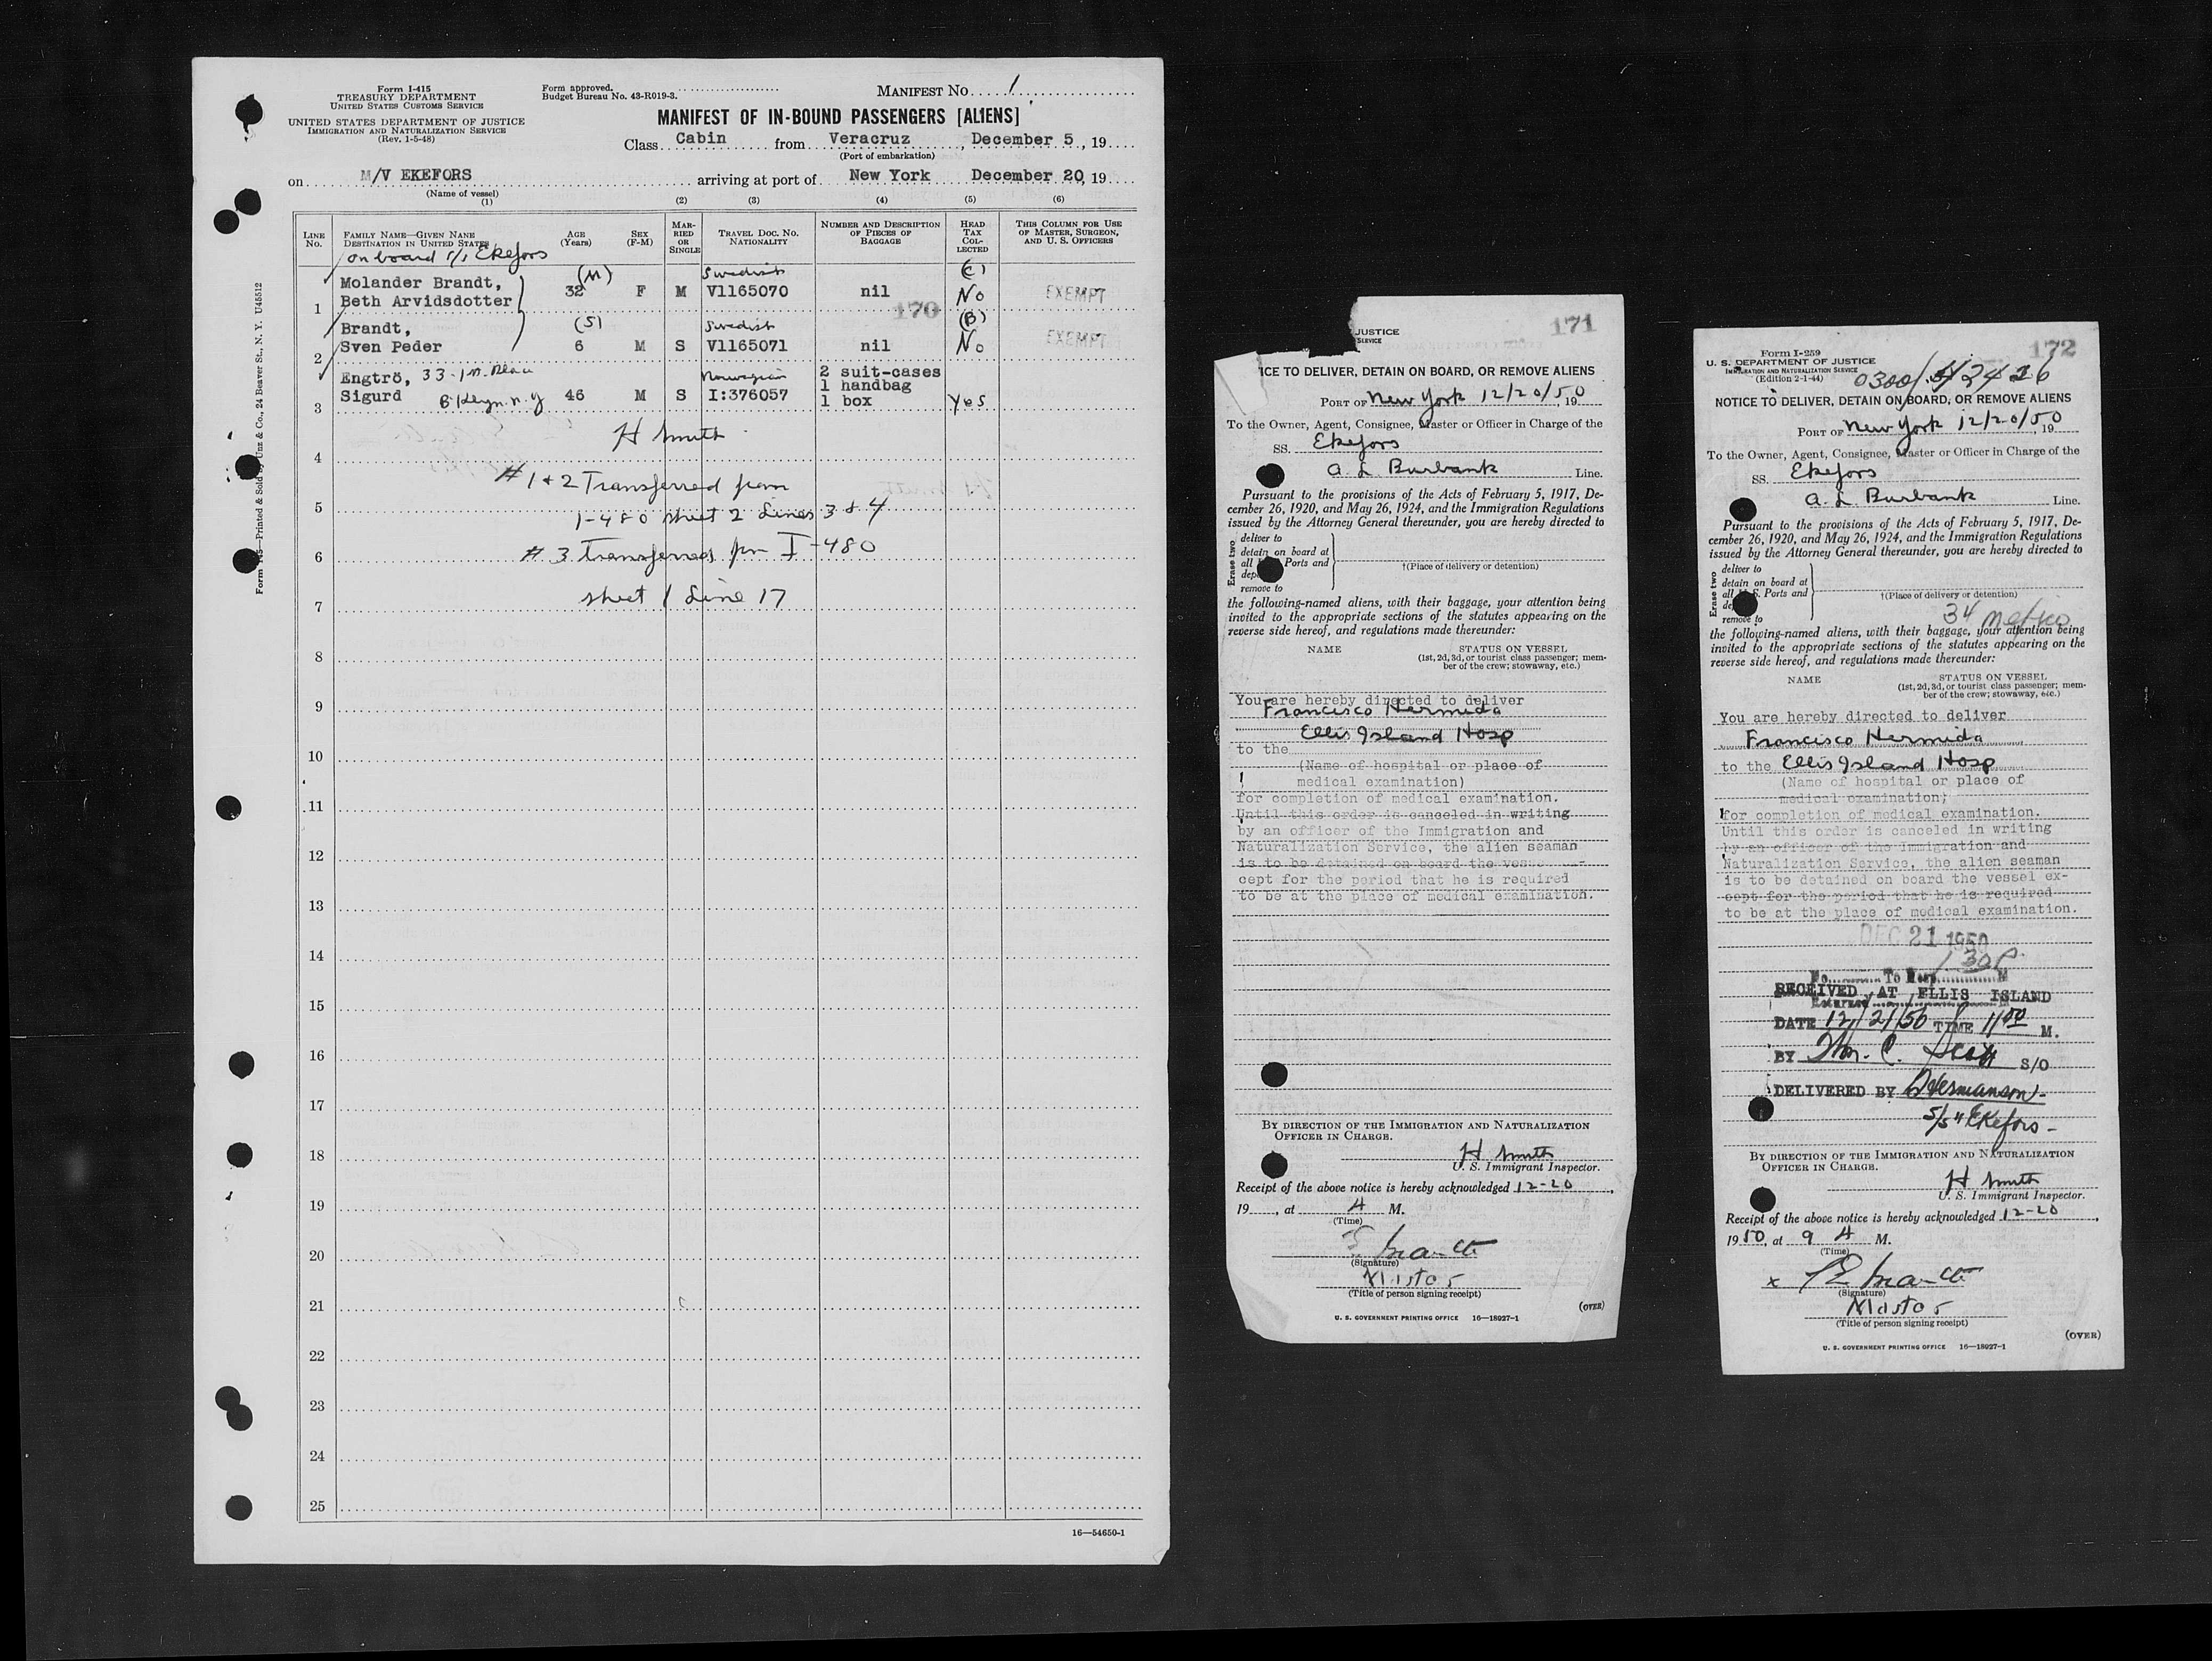 Form I-415
TREASURY DEPARTMENT
UNITED STATES CUSTOMS SERVICE
UNITED STATES DEPARTMENT OF JUSTICE
IMMIGRATION AND NATURALIZATION SERVICE
(Rev. 1-5-48)
Form approved.
Budget Bureau No. 43-R019-3.
MANIFEST No. 1
MANIFEST OF IN-BOUND PASSENGERS [ALIENS]
Class Cabin from Veracruz, December 5, 19
(Port of embarkation)
on M/V EKEFORS arriving at port of New York December 20, 19
(Name of vessel)
(1) (2) (3) (4) (5) (6)
LINE No. FAMILY NAME—GIVEN NAME DESTINATION IN UNITED STATES AGE (Years) SEX (F-M) MARRIED OR SINGLE TRAVEL DOC. NO. NATIONALITY NUMBER AND DESCRIPTION OF PIECES OF BAGGAGE HEAD TAX COLLECTED THIS COLUMN FOR USE OF MASTER, SURGEON, AND U. S. OFFICERS
on board Ekefors
(M) Swedish (C)
Molander Brandt,
1 Beth Arvidsdotter 32 F M V1165070 nil No EXEMPT
170
Brandt, (S) Swedish (B)
2 Sven Peder 6 M S V1165071 nil No EXEMPT
Engtrö, 33-1st Place Norwegian 2 suit-cases
Sigurd Bklyn. N.Y 46 M S I:376057 1 handbag
3 1 box Yes
H Smith
4
#1 + 2 Transferred from
5 I-480 sheet 2 Lines 3 & 4
6 #3 Transferred fm I-480
7 sheet 1 Line 17
8
9
10
11
12
13
14
15
16
17
18
19
20
21
22
23
24
25
16—54650-1
Printed & Sold by Unz & Co., 24 Beaver St., N. Y. U45512
171
JUSTICE
SERVICE
ICE TO DELIVER, DETAIN ON BOARD, OR REMOVE ALIENS
PORT OF New York 12/20/50, 19
To the Owner, Agent, Consignee, Master or Officer in Charge of the
SS. Ekefors
A. L Burbank Line.
Pursuant to the provisions of the Acts of February 5, 1917, De-
cember 26, 1920, and May 26, 1924, and the Immigration Regulations
issued by the Attorney General thereunder, you are hereby directed to
Erase two
deliver to
detain on board at
all Ports and
†(Place of delivery or detention)
remove to
the following-named aliens, with their baggage, your attention being
invited to the appropriate sections of the statutes appearing on the
reverse side hereof, and regulations made thereunder:
NAME STATUS ON VESSEL
(1st, 2d, 3d, or tourist class passenger; mem-
ber of the crew; stowaway, etc.)
You are hereby directed to deliver
Francisco Hermida
Ellis Island Hosp
to the
(Name of hospital or place of
medical examination)
for completion of medical examination.
Until this order is canceled in writing
by an officer of the Immigration and
Naturalization Service, the alien seaman
is to be detained on board the vess
cept for the period that he is required
to be at the place of medical examination.
BY DIRECTION OF THE IMMIGRATION AND NATURALIZATION
OFFICER IN CHARGE.
H Smith
U. S. Immigrant Inspector.
Receipt of the above notice is hereby acknowledged 12-20,
19, at A M.
(Time)
(Signature)
Master
(Title of person signing receipt)
(OVER)
U. S. GOVERNMENT PRINTING OFFICE 16—18927-1
172
Form I-259
U. S. DEPARTMENT OF JUSTICE
IMMIGRATION AND NATURALIZATION SERVICE
(Edition 2-1-44)
NOTICE TO DELIVER, DETAIN ON BOARD, OR REMOVE ALIENS
PORT OF New York 12/20/50, 19
To the Owner, Agent, Consignee, Master or Officer in Charge of the
SS. Ekefors
A. L Burbank Line.
Pursuant to the provisions of the Acts of February 5, 1917, De-
cember 26, 1920, and May 26, 1924, and the Immigration Regulations
issued by the Attorney General thereunder, you are hereby directed to
Erase two
deliver to
detain on board at
all U. S. Ports and
†(Place of delivery or detention)
remove to
the following-named aliens, with their baggage, your attention being
invited to the appropriate sections of the statutes appearing on the
reverse side hereof, and regulations made thereunder:
NAME STATUS ON VESSEL
(1st, 2d, 3d, or tourist class passenger; mem-
ber of the crew; stowaway, etc.)
You are hereby directed to deliver
Francisco Hermida
to the Ellis Island Hosp
(Name of hospital or place of
medical examination)
for completion of medical examination.
Until this order is canceled in writing
by an officer of the Immigration and
Naturalization Service, the alien seaman
is to be detained on board the vessel ex-
cept for the period that he is required
to be at the place of medical examination.
DEC 21 1950
1 30 P.
To Hosp. M
RECEIVED AT ELLIS ISLAND
DATE 12/21/50 TIME 1100 M.
BY Wm. C. Scott S/O
DELIVERED BY Hermanson
S/S "Ekefors"
BY DIRECTION OF THE IMMIGRATION AND NATURALIZATION
OFFICER IN CHARGE.
H Smith
U. S. Immigrant Inspector.
Receipt of the above notice is hereby acknowledged 12-20,
1950, at 9 A M.
(Time)
x
(Signature)
Master
(Title of person signing receipt)
(OVER)
U. S. GOVERNMENT PRINTING OFFICE 16—18927-1